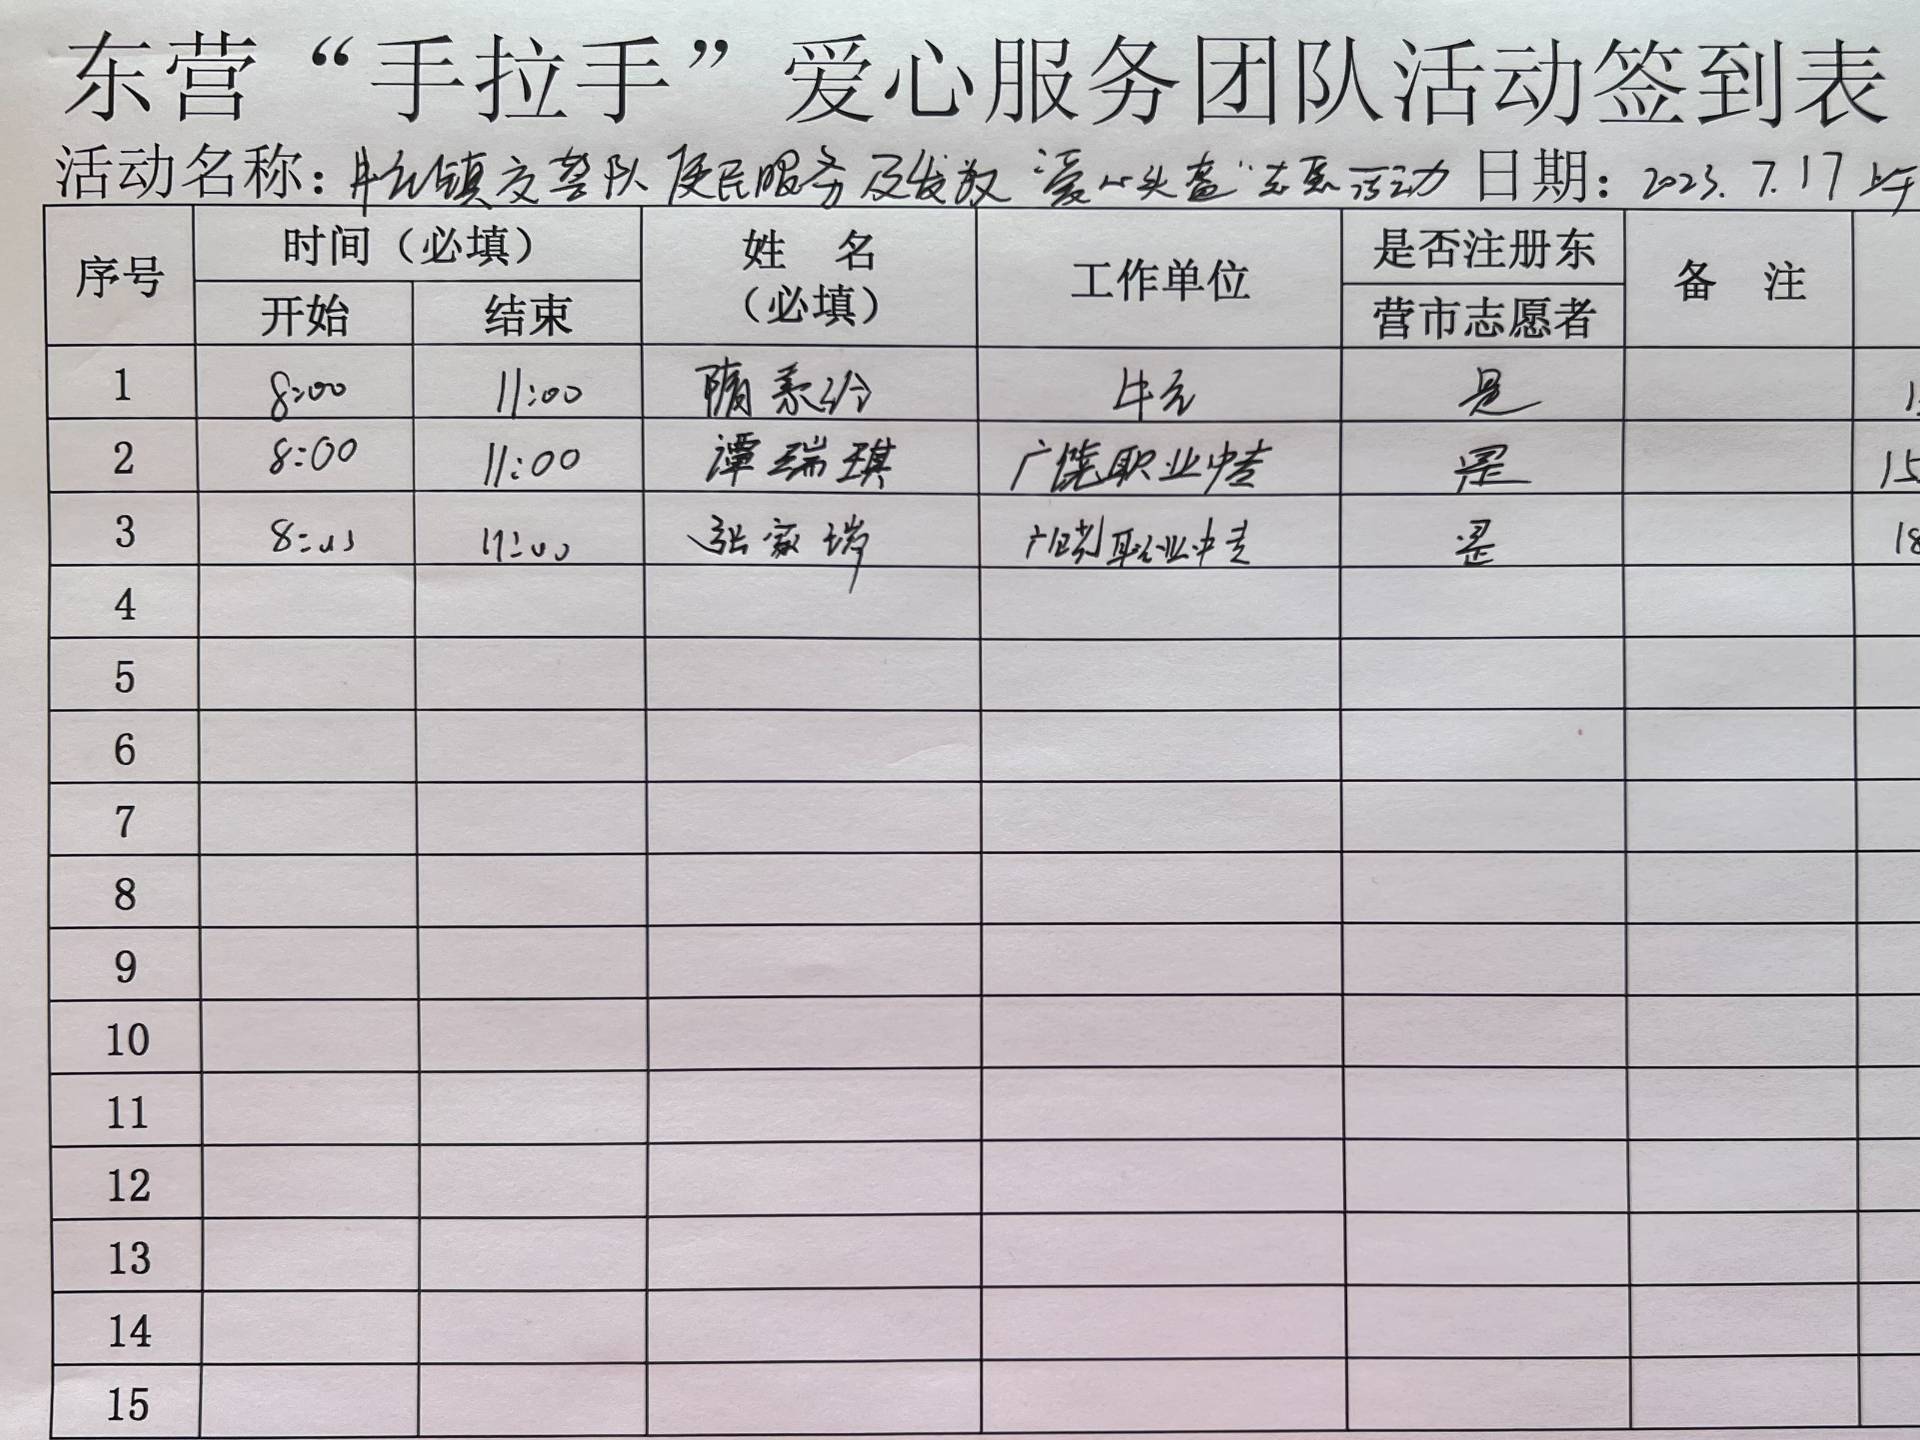 东营“手拉手”爱心服务团队活动签到表
活动名称：牛庄镇交警队便民服务及发放“爱心头盔”志愿活动 日期：2023.7.17上午
序号 时间（必填） 姓 名 工作单位 是否注册东 备 注
开始 结束 （必填） 营市志愿者
1 8:00 11:00 隋 牛庄 是
2 8:00 11:00 谭瑞琪 广饶职业中专 是 15
3 8:00 11:00 张家瑞 广饶职业中专 是 18
4
5
6
7
8
9
10
11
12
13
14
15